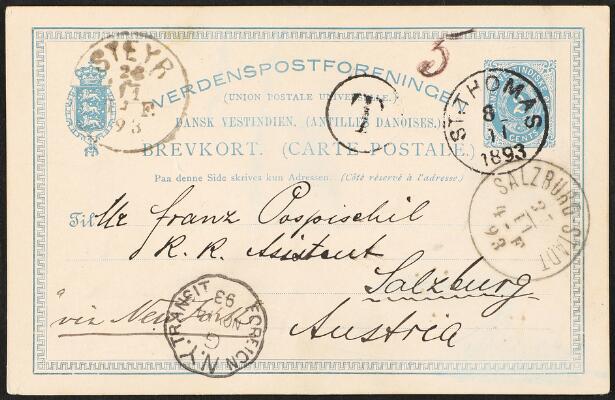 STEYR
26
11
F
93
5
VERDENSPOSTFORENINGEN
(UNION POSTALE UNIVERSELLE.)
T
DANSK VESTINDIEN. (ANTILLES DANOISES.)
BREVKORT. (CARTE-POSTALE.)
Paa denne Side skrives kun Adressen. (Côté réservé à l'adresse.)
CENTS
ST. THOMAS
8
11
1893
SALZBURG STADT
11
4-F
93
Til Mr Franz Pospischil
K. K. Asistent
Salzburg
"via New-York"
Austria
N.Y. TRANSIT
FOREIGN
NOV
93